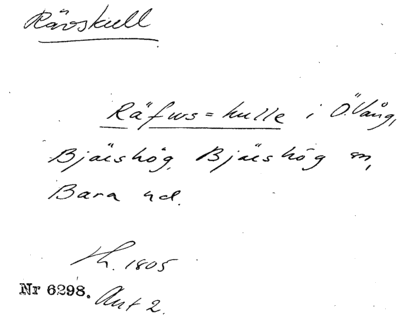 Rävskull
Räfws=kulle i Ö. Vång,
Bjäishög, Bjäishög sn,
Bara hd.
Sk. 1805
Nr 6298. Akt 2.